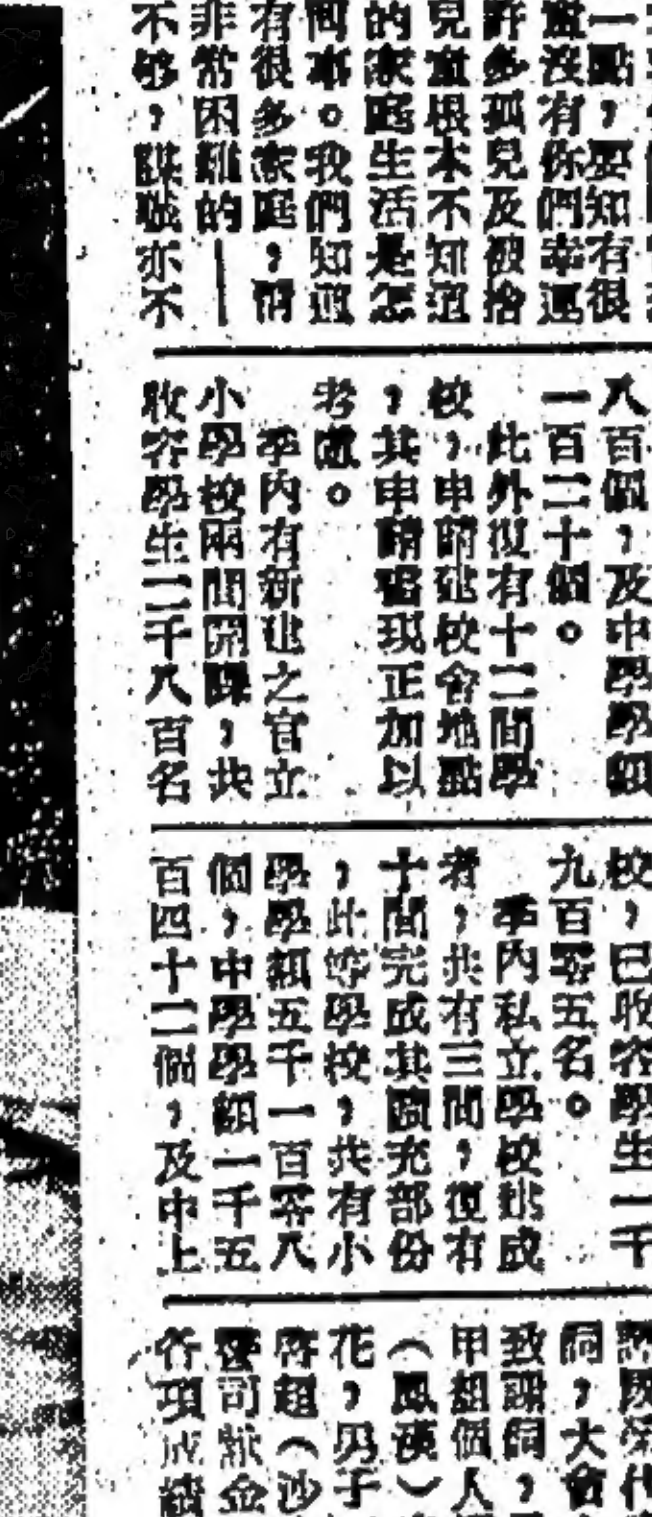 一點，要知有很
童沒有你們幸運
許多孤兒及被捨
兒童根本不知道
的家庭生活是怎
何事。我們知道
有很多家庭，情
非常困難的——
不够，謀職亦不
八百個，及中學學額
一百二十個。
此外復有十二間學
校，申請建校舍地點
，其申請書現正加以
考慮。
季內有新建之官立
小學校兩間開課，共
收容學生二千八百名
校，已收容學生一千
九百零五名。
季內私立學校建成
者，共有三間，復有
十間完成其擴充部份
，此等學校，共有小
學學額五千一百零八
個，中學學額一千五
百四十二個，及中上
詞，大會
致謝詞，
甲組個人
（鳳溪）
花，男子
啓超（沙
警司獻金
各項成績